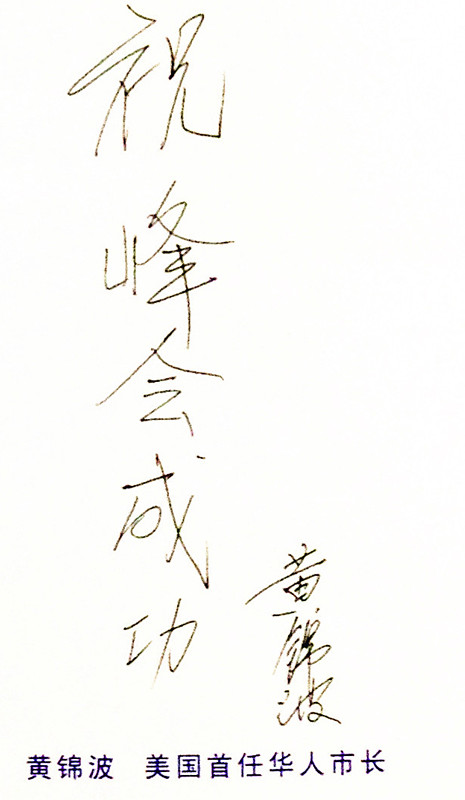 祝峰会成功
黄锦波
黄锦波 美国首任华人市长